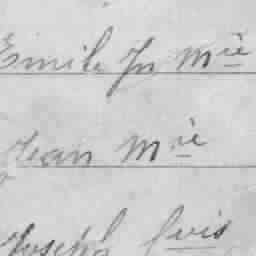 Emile Jn Mie
Jean Mie
Joseph fvis